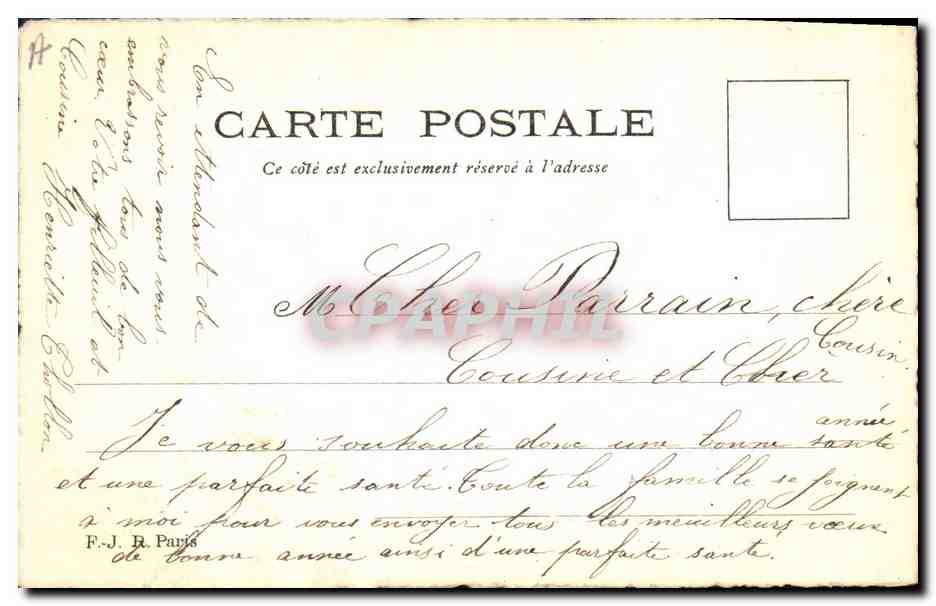 A
CARTE POSTALE
Ce côté est exclusivement réservé à l'adresse
M Cher Parrain, chère
Cousine et Cher Cousin
Je vous souhaite donc une bonne santé année
et une parfaite santé. Toute la famille se joignent
à moi pour vous envoyer tous les meilleurs voeux
de bonne année ainsi d'une parfaite santé.
En attendant de
vous revoir nous vous
embrassons tous de bon
cœur. Votre filleuil et
Cousine Henriette Thollon
F.-J. R. Paris
CPAPHIL